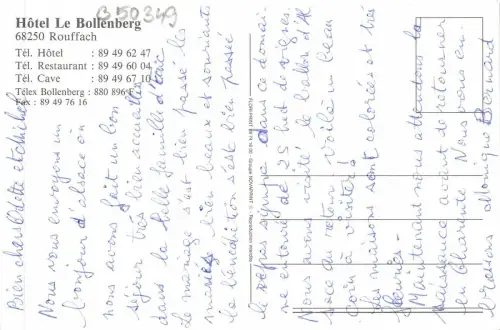 B50349
Hôtel Le Bollenberg
68250 Rouffach
Tél. Hôtel : 89 49 62 47
Tél. Restaurant : 89 49 60 04
Tél. Cave : 89 49 67 10
Télex Bollenberg : 880 896 F
Fax : 89 49 76 16
Bien chers Odette et Michel
Nous vous envoyons un
bonjour d'alsace où
nous avons fait un bon
séjour très bien accueillis
dans la belle famille d'Eric
Le mariage s'est bien passé les
mariés bien beaux et souriants
la bénédiction s'est bien passée
le repas aussi dans ce domai-
ne entouré de 25 hect de vignes.
Nous avons visité le ballon d'Al
sace au retour voilà un beau
coin à visiter!
Les maisons sont colorées et très
fleuries.
Maintenant nous attendons la
naissance avant de retourner
en Charente. Nous vous em-
brassons Monique Bernard